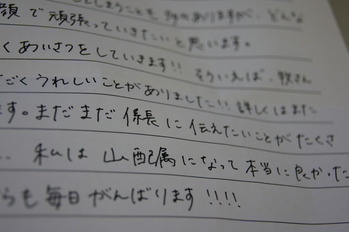 としてしまうことも多々ありますが、どんな
顔で頑張っていきたいと思います。
くあいさつをしていきます!! そういえば、牧さん
ごくうれしいことがありました!! 詳しくはまた
ます。まだまだ係長に伝えたいことがたくさ
.. 私は山配属になって本当に良かった
らも毎日がんばります!!!!